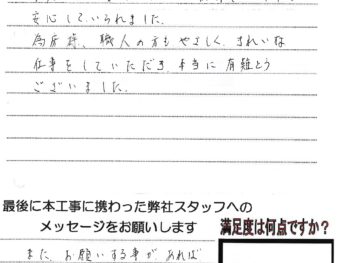 安心していられました。
職人の方もやさしく、きれいな
仕事をしていただき、本当に有難とう
ございました。
最後に本工事に携わった弊社スタッフへの
メッセージをお願いします
満足度は何点ですか？
また、お願いする事があれば